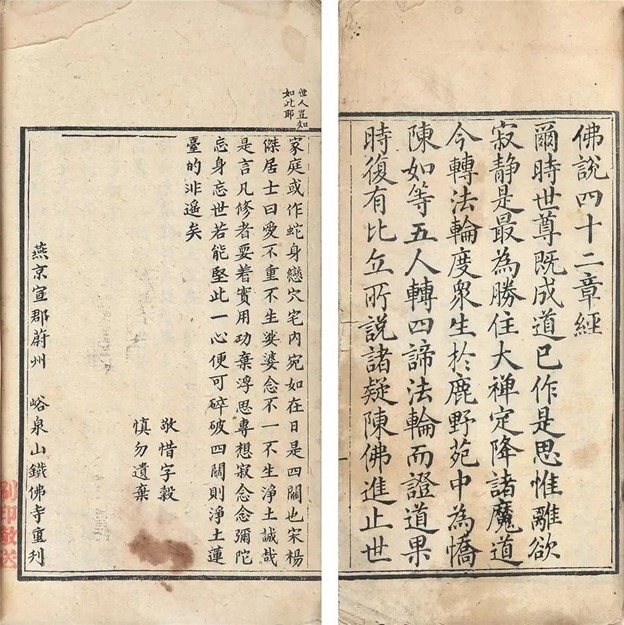 佛說四十二章經
爾時世尊既成道已作是思惟離欲
寂静是最為勝住大禅定降諸魔道
今轉法輪度衆生於鹿野苑中為憍
陳如等五人轉四諦法輪而證道果
時復有比丘所說諸疑陳佛進止世
世人豈知
如此耶
家庭或作蛇身戀穴宅内宛如在日是四關也宋楊
傑居士曰愛不重不生娑婆念不一不生淨土誠哉
是言凡修者要着實用功棄浮思專想寂念念彌陀
忘身忘世若能堅此一心便可碎破四關則淨土蓮
臺的非遥矣
敬惜字穀
慎勿遺棄
燕京宣郡蔚州 峪泉山鐵佛寺重刊